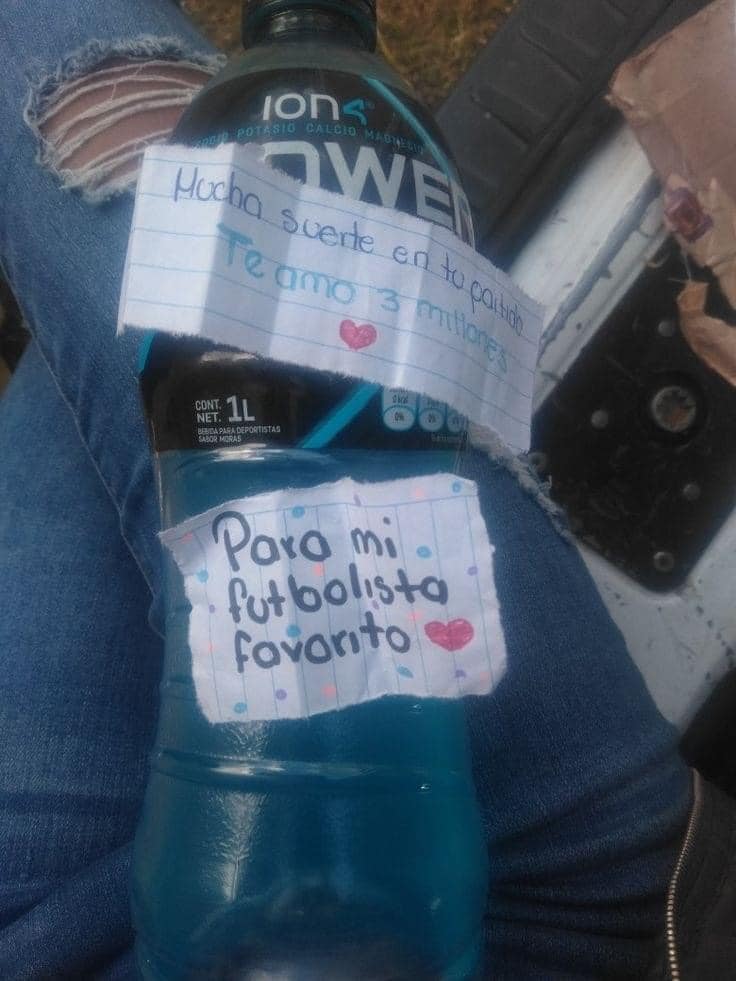 ION4
POTASIO CALCIO MAGNESIO
OWER
Mucha suerte en tu partido
Te amo 3 millones
CONT.
NET. 1L
BEBIDA PARA DEPORTISTAS
SABOR MORAS
0%
0%
Para mi
futbolista
favorito